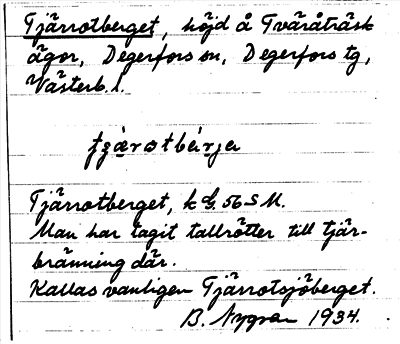 Tjärrotberget, höjd å Tväråträsk
ägor, Degerfors sn, Degerfors tg,
Västerb. l.
Tjärrotberget, k bl. 56 S M.
Man har tagit tallrötter till tjär-
bränning där.
Kallas vanligen Tjärrotsjöberget.
B. Nygren 1934.